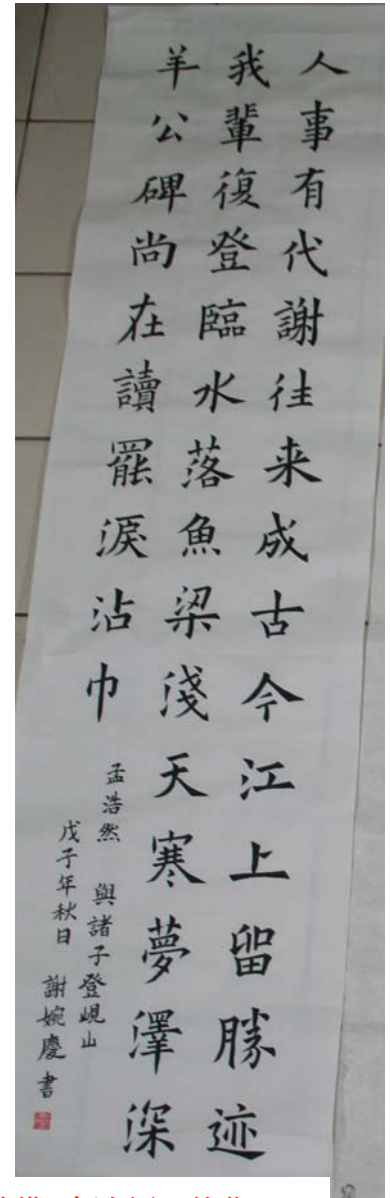 人事有代謝往来成古今江上留勝迹
我輩復登臨水落魚梁淺天寒夢澤深
羊公碑尚在讀罷淚沾巾
孟浩然 與諸子登峴山
戊子年秋日 謝婉慶書